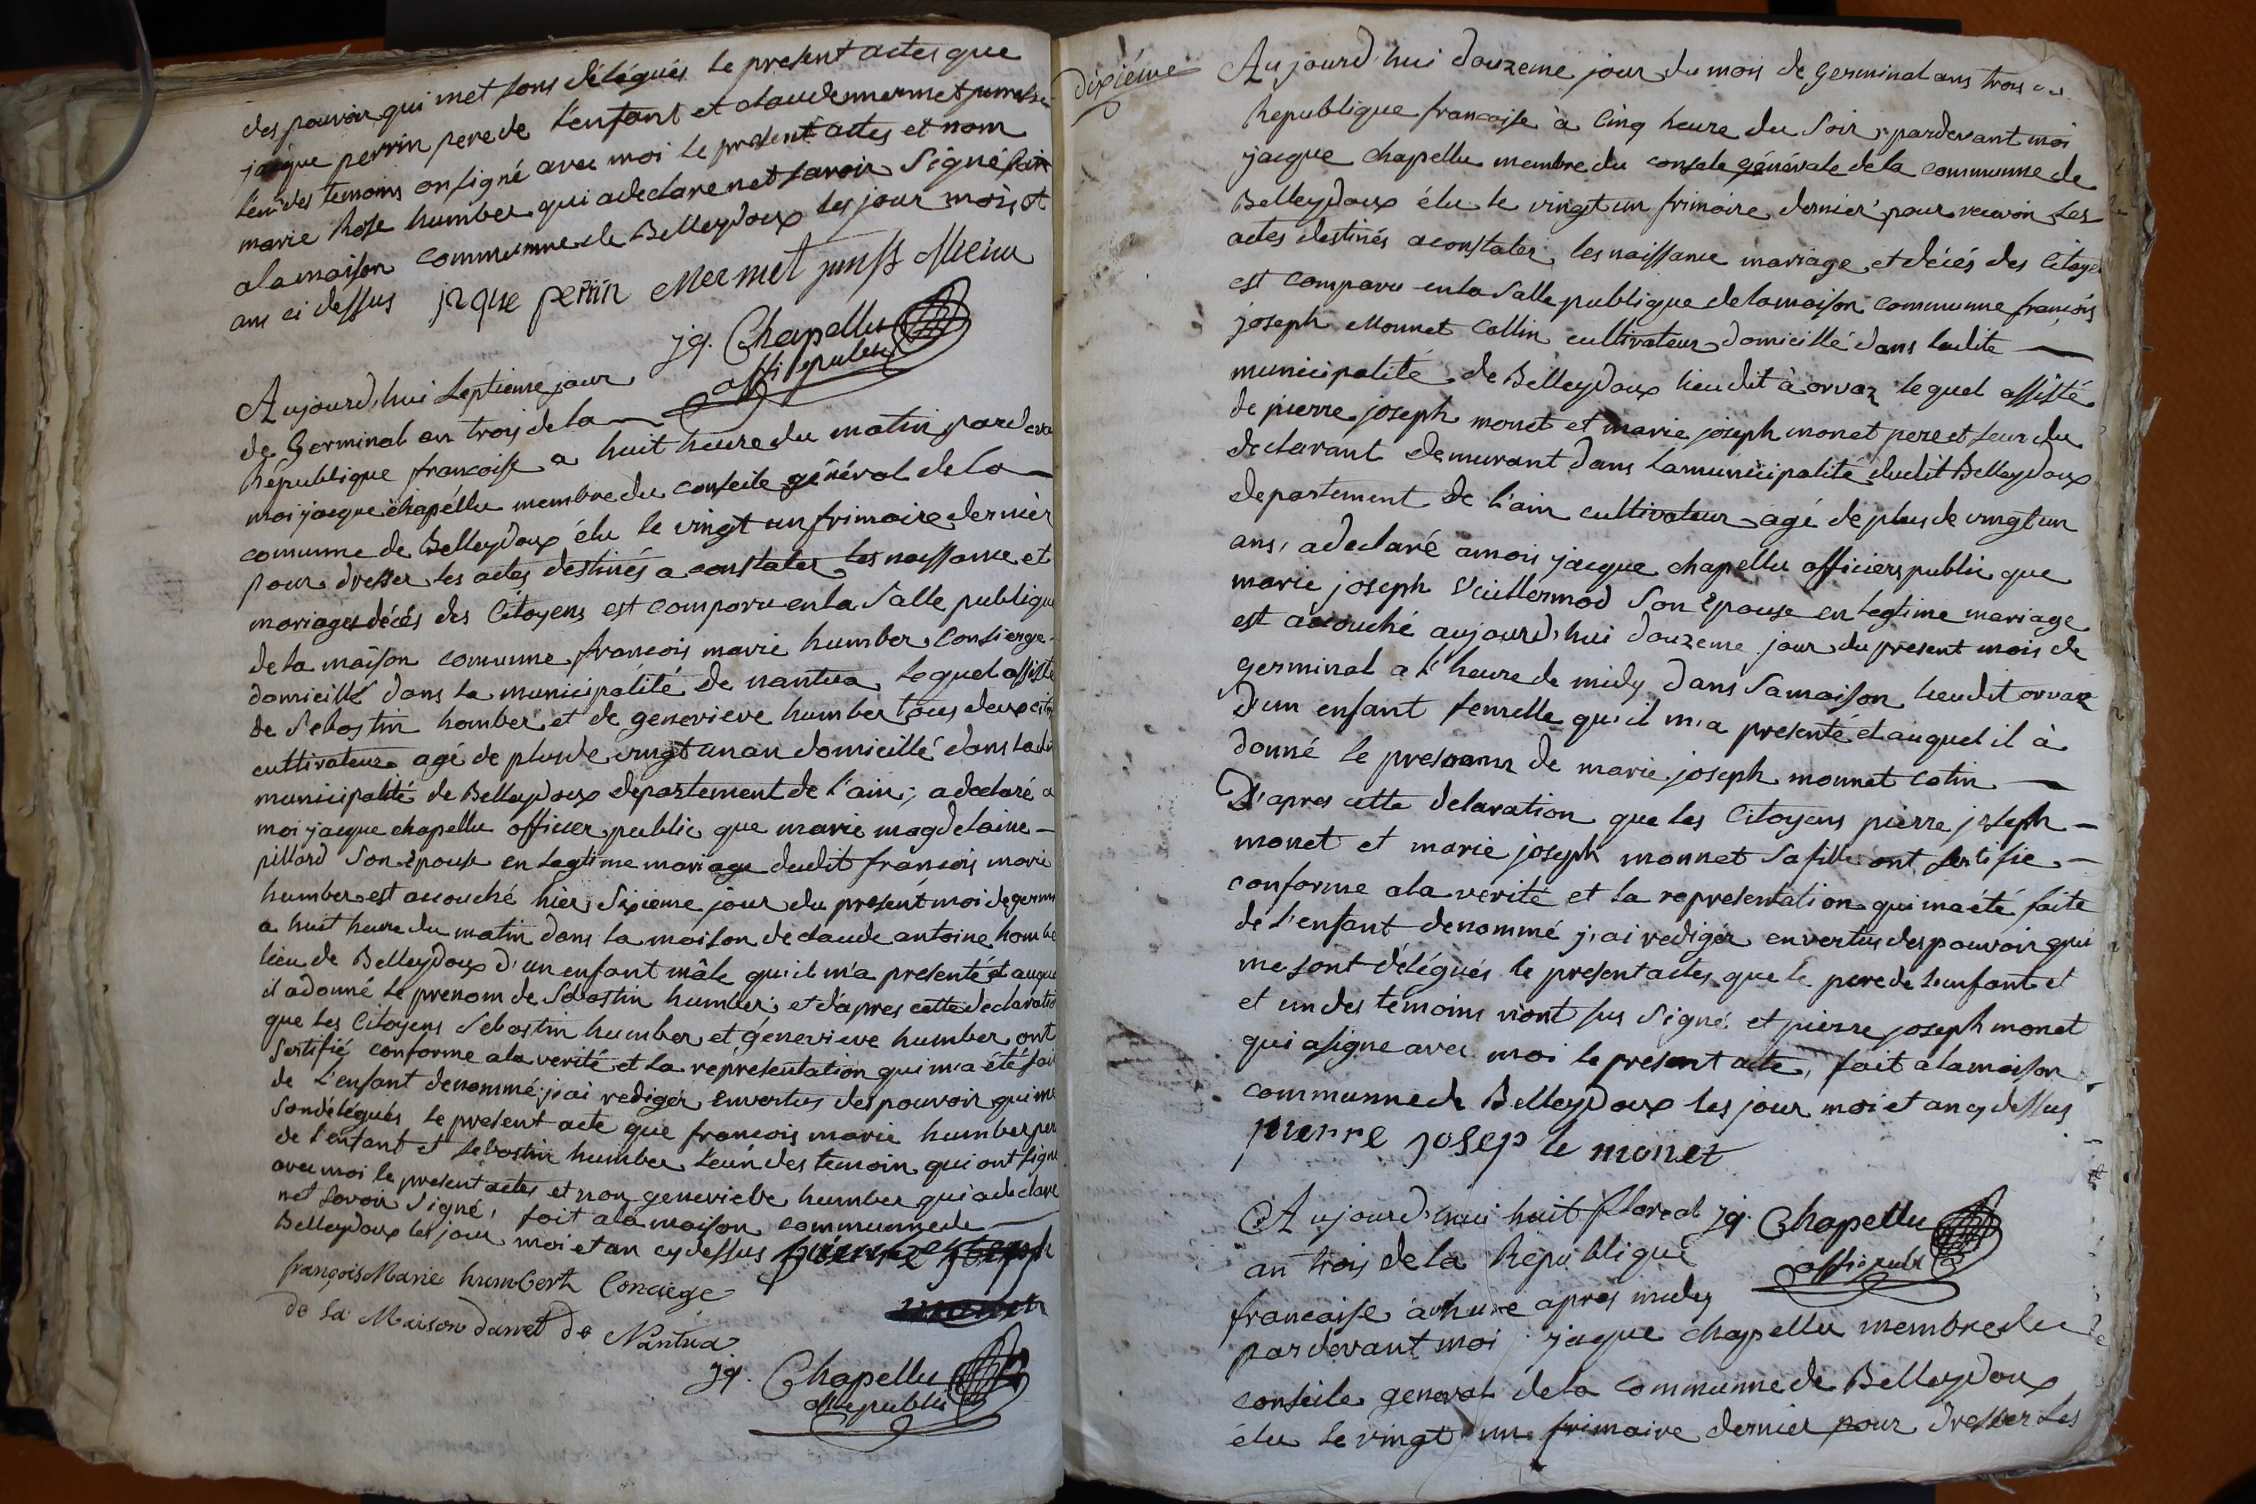 des pouvoir qui met sons délégués le present actes que
jacque perrin pere de l'enfant et claude mermet
l'un des temoins on signé avec moi le present actes et nom
marie Rose humber qui a declare net savoir Signé fait
a la maison commumne de Belleydoux les jour mois et
ans ci dessus jaque perrin Mermet
jq. Chapellu
offi public
Aujourd'hui septieme jour
de Germinal an trois de la
République francoise a huit heure du matin pardeva
moi jacque chapéllu membre du conseile général de la
comunne de Belleydoux élu le vingt un frimaire dernier
pour dresser les actes destinés a constater les naissance et
mariages décés des Citoyens est comparu en la Salle publique
de la maison comunne francois marie humber Consierge
domicillé dans la municipalité de nantua lequel assisté
de Sebostin homber et de genevieve humber tous deux
cultivateur agé de plus de vingt un an domicillé dans ladi
municipalité de Belleydoux departement de l'ain; a declaré a
moi jacque chapellu officier public que marie magdelaine
pillard Son Epouse en legtime mariage dudit francois marie
humber est acouché hier Sixieme jour du present moi de germi
a huit heure du matin dans la maison de claude antoine hombe
lieu de Belleydoux d'un enfant mâle qu'il m'a presenté et auque
il a donné le prenom de Sebostin humber; et d'apres cette declaratio
que les Citoyens Sebostin humber et Genevieve humber ont
Sertifié conforme a la verité et la representation qui m'a été fai
de l'enfant denommé j'ai rediger en vertus des pouvoir qui me
son délégués le present acte que francois marie humber per
de l'enfant et Sebostin humber l'eun des temoin qui ont signe
avec moi le present actes et non genevieve humber qui a declare
net Savoir Signé, fait a la maison commumne de
Belleydoux les jour moi et an cy dessus
françois Marie humbert Conciege
de la Maison d'arret de Nantua
jq. Chapellu
offi public
dixiéme
Aujourd'hui douzeme jour du mois de Germinal ans trois
Republique francoise à Cinq heure du Soir, pardevant moi
jacque chapellu membre du consele générale de la commumne de
Belleydoux élu le vingt un frimaire dernier pour recevoir les
actes destinés a constater les naissance mariage et décés des Citoye
est comparu en la Salle publique de la maison commumne françois
joseph Monnet Collin cultivateur domicillé dans ladite
municipalité de Belleydoux lieu dit à orvaz lequel assisté
de pierre joseph monet et marie joseph monet pere et seur du
declarant demurant dans la municipalité dudit Belleydoux
departement de l'ain cultivateur agé de plus de vingt un
ans, a declaré a mois jacque chapellu officiers public que
marie joseph Vuillermod Son Epouse en legtime mariage
est acouché aujourd'hui douzeme jour du present mois de
germinal a l'heure de midy dans Sa maison lieu dit orvaz
d'un enfant femelle qu'il m'a presenté et auquel il à
donné le presnom de marie joseph monnet colin
D'apres cette delaration que les Citoyens pierre joseph
monet et marie joseph monnet Sa fille ont sertifie
conforme a la verité et la representation qui ma été faite
de l'enfant denommé j'ai rediger en vertus des pouvoir qui
me sont délégués le present actes que le pere de l'enfant et
et un des témoins n'ont sus Signé et pierre joseph monet
qui a signe avec moi le present acte, fait a la maison
commumne de Belleydoux les jour moi et an cy dessus
pierre josep le monet
Aujourd'hui huit floreal jq. Chapellu
an trois de la Republique offi publ
francaise a heure apres midy
pardevant moi jacque chapellu membre du
conseile general de la commumne de Belleydoux
élu le vingt un frimaire dernier pour dresser les